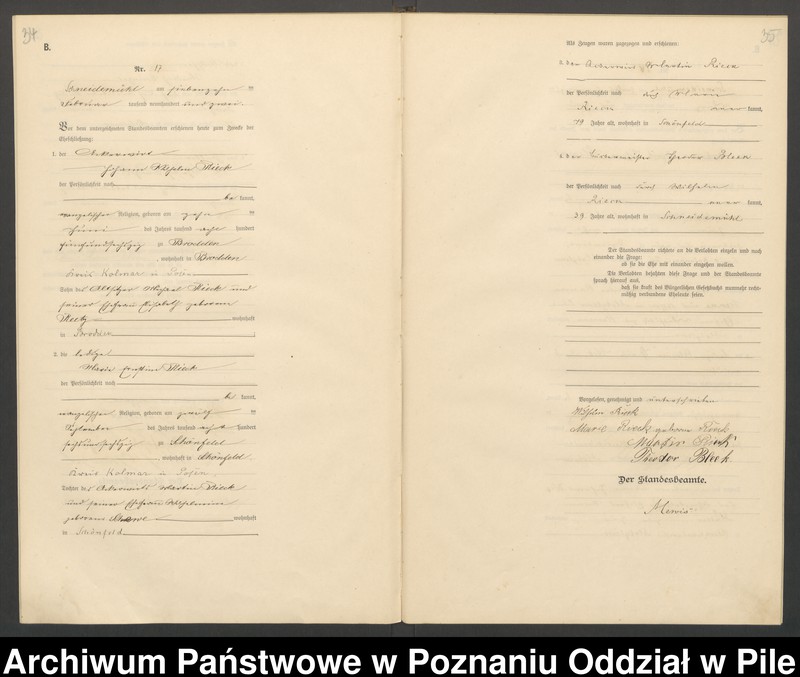 34
B.
Nr. 17
Schneidemühl am siebenzehn ten
Februar tausend neunhundert und zwei.
Vor dem unterzeichneten Standesbeamten erschienen heute zum Zwecke der
Eheschließung:
1. der Ackerwirt
Johann Wilhelm Rieck
der Persönlichkeit nach
be kannt,
evangelischer Religion, geboren am zehn ten
Juni des Jahres tausend acht hundert
fünfundsechszig zu Brodden
, wohnhaft in Brodden
Kreis Kolmar in Posen
Sohn des Altsitzer Michael Rieck und
seiner Ehefrau Elisabeth geborene
wohnhaft
in Brodden
2. die ledige
Marie Ernstine Rieck
der Persönlichkeit nach
be kannt,
evangelischer Religion, geboren am zwölf ten
September des Jahres tausend acht hundert
sechsundsechszig zu Schönfeld
, wohnhaft in Schönfeld
Kreis Kolmar in Posen
Tochter des Ackerwirts Martin Rieck
und seiner Ehefrau Wilhelmine
geborene wohnhaft
in Schönfeld
35
Als Zeugen waren zugezogen und erschienen:
3. der Ackerwirt Martin Rieck
der Persönlichkeit nach durch
Rieck aner kannt,
79 Jahre alt, wohnhaft in Schönfeld
4. der Theodor Bleek
der Persönlichkeit nach durch Wilhelm
Rieck aner kannt,
39 Jahre alt, wohnhaft in Schneidemühl
Der Standesbeamte richtete an die Verlobten einzeln und nach
einander die Frage:
ob sie die Ehe mit einander eingehen wollen.
Die Verlobten bejahten diese Frage und der Standesbeamte
sprach hierauf aus,
daß sie kraft des Bürgerlichen Gesetzbuchs nunmehr recht-
mäßig verbundene Eheleute seien.
Vorgelesen, genehmigt und unterschrieben
Wilhelm Rieck
Marie Rieck geborene Rieck
Rieck
Theodor Bleek.
Der Standesbeamte.
Archiwum Państwowe w Poznaniu Oddział w Pile